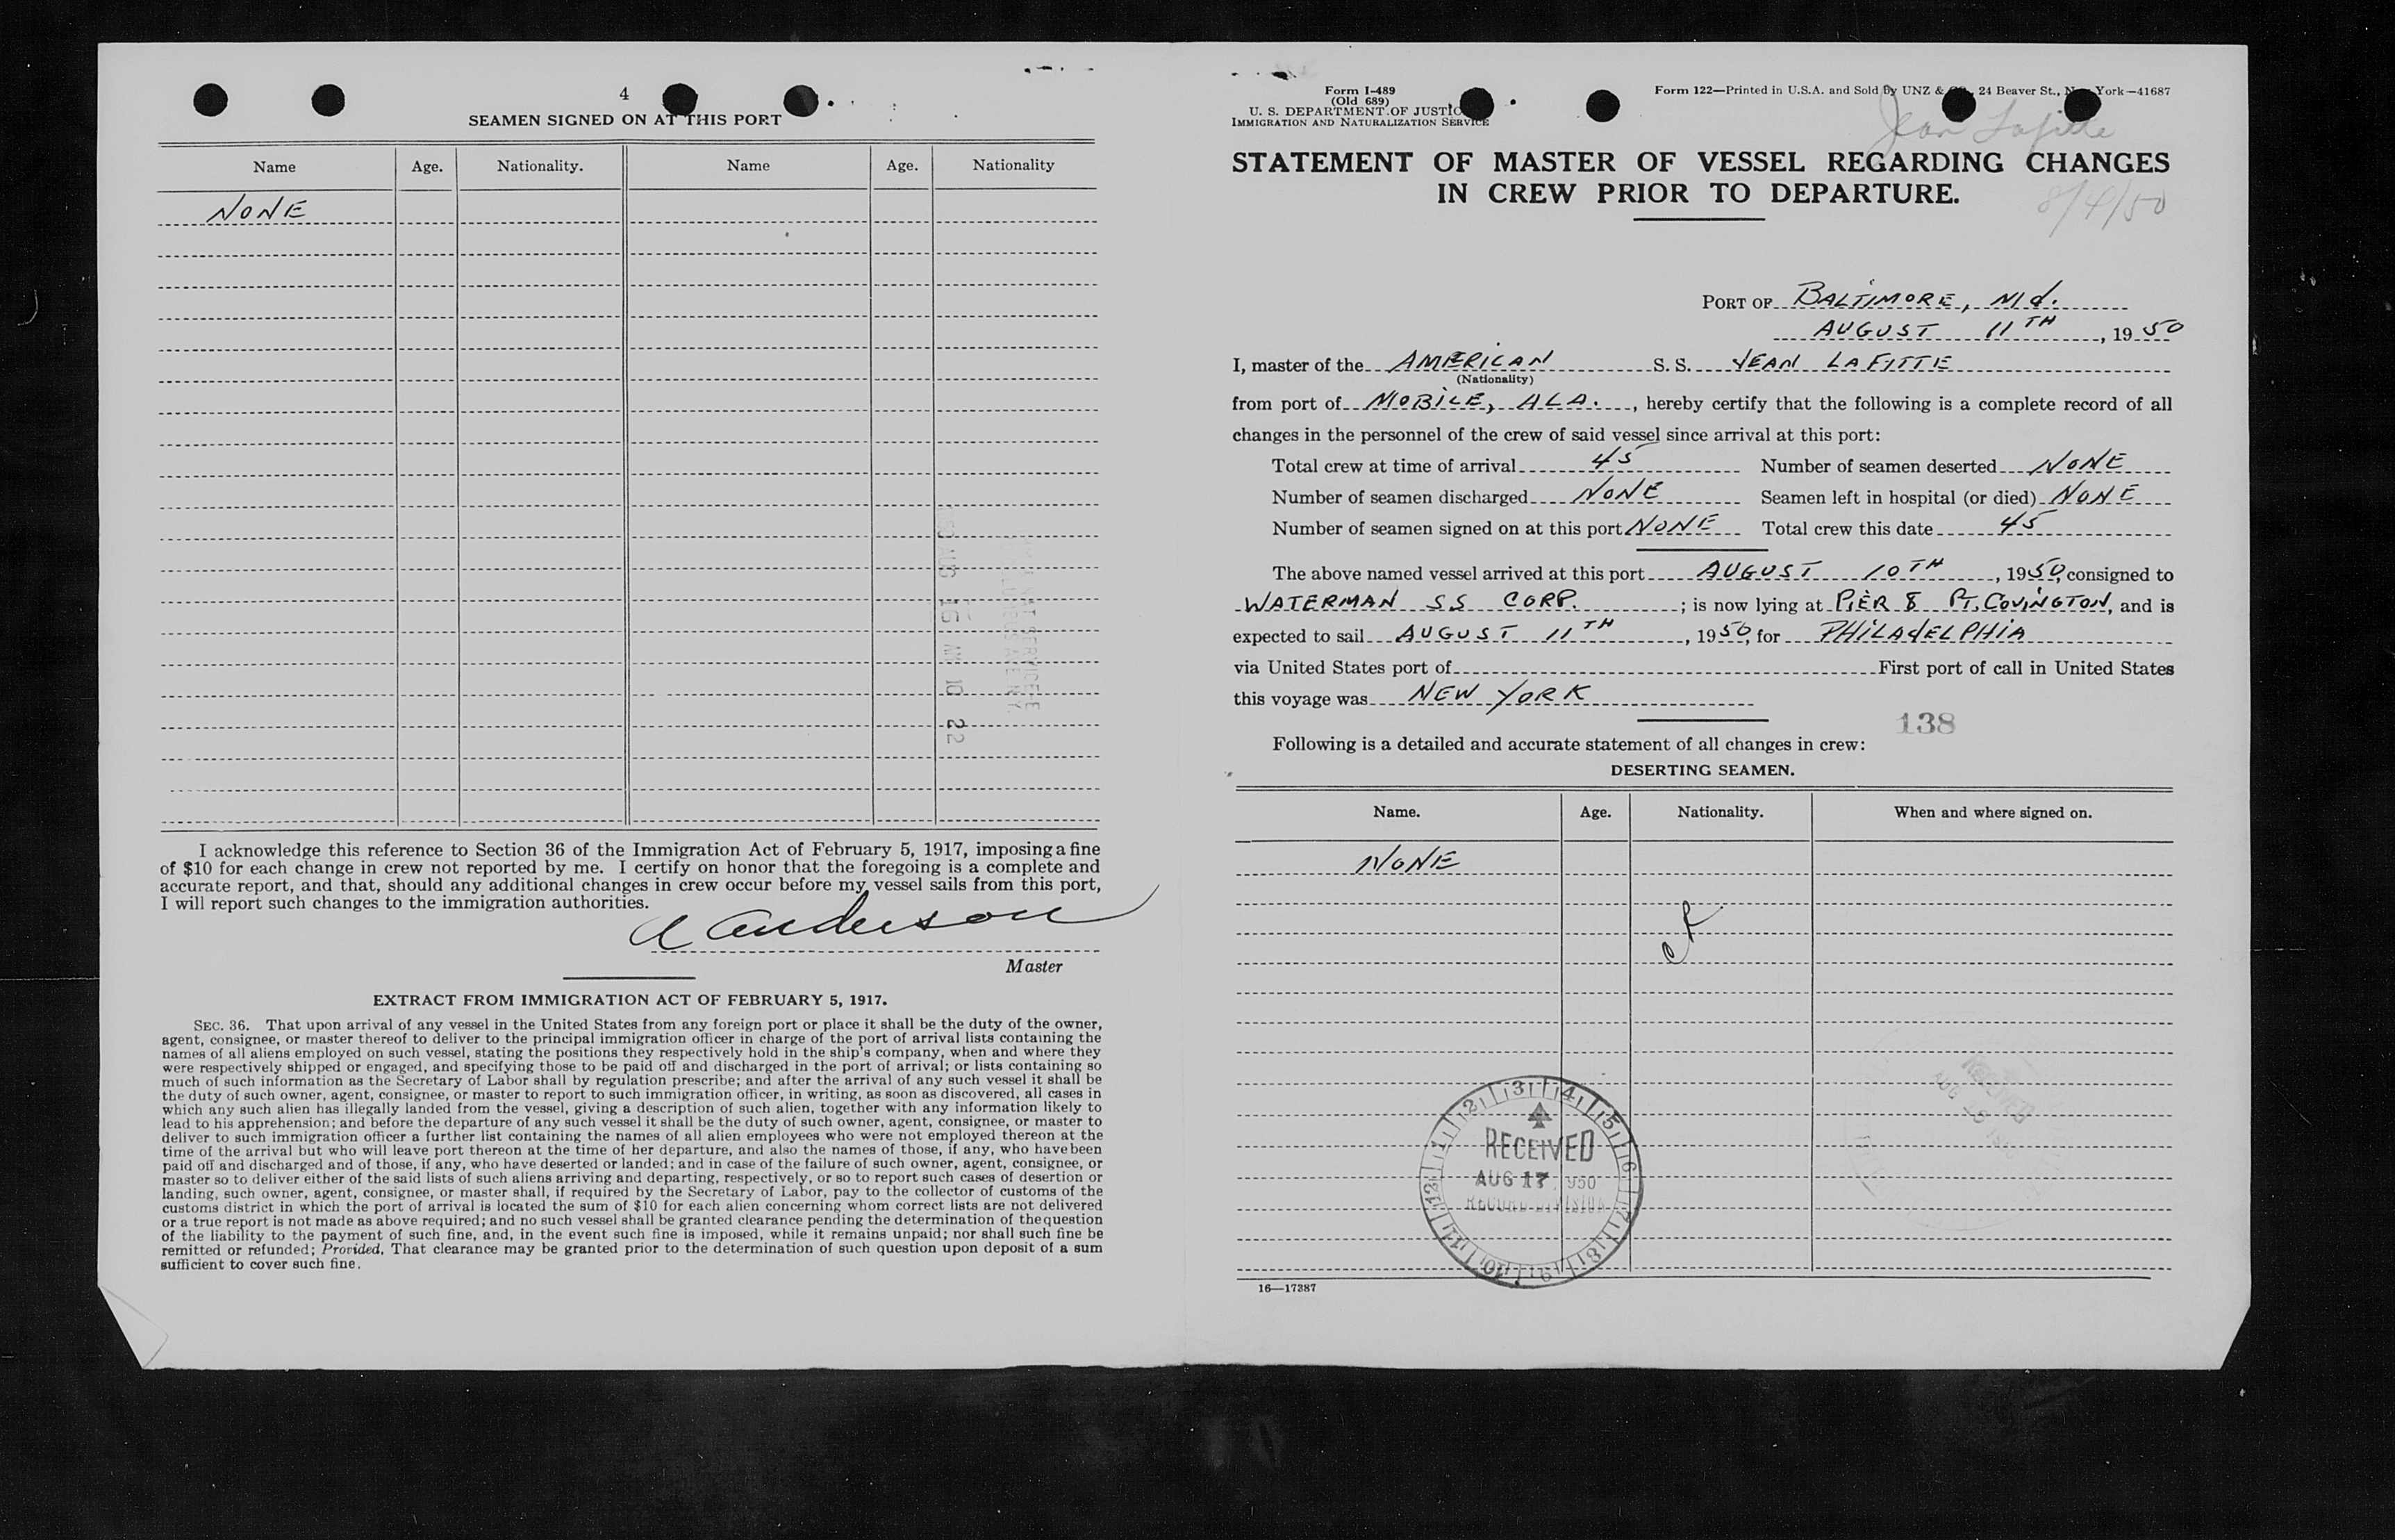 4
SEAMEN SIGNED ON AT THIS PORT
Name Age. Nationality. Name Age. Nationality
NONE
I acknowledge this reference to Section 36 of the Immigration Act of February 5, 1917, imposing a fine
of $10 for each change in crew not reported by me. I certify on honor that the foregoing is a complete and
accurate report, and that, should any additional changes in crew occur before my vessel sails from this port,
I will report such changes to the immigration authorities.
A Anderson
Master
EXTRACT FROM IMMIGRATION ACT OF FEBRUARY 5, 1917.
SEC. 36. That upon arrival of any vessel in the United States from any foreign port or place it shall be the duty of the owner,
agent, consignee, or master thereof to deliver to the principal immigration officer in charge of the port of arrival lists containing the
names of all aliens employed on such vessel, stating the positions they respectively hold in the ship's company, when and where they
were respectively shipped or engaged, and specifying those to be paid off and discharged in the port of arrival; or lists containing so
much of such information as the Secretary of Labor shall by regulation prescribe; and after the arrival of any such vessel it shall be
the duty of such owner, agent, consignee, or master to report to such immigration officer, in writing, as soon as discovered, all cases in
which any such alien has illegally landed from the vessel, giving a description of such alien, together with any information likely to
lead to his apprehension; and before the departure of any such vessel it shall be the duty of such owner, agent, consignee, or master to
deliver to such immigration officer a further list containing the names of all alien employees who were not employed thereon at the
time of the arrival but who will leave port thereon at the time of her departure, and also the names of those, if any, who have been
paid off and discharged and of those, if any, who have deserted or landed; and in case of the failure of such owner, agent, consignee, or
master so to deliver either of the said lists of such aliens arriving and departing, respectively, or so to report such cases of desertion or
landing, such owner, agent, consignee, or master shall, if required by the Secretary of Labor, pay to the collector of customs of the
customs district in which the port of arrival is located the sum of $10 for each alien concerning whom correct lists are not delivered
or a true report is not made as above required; and no such vessel shall be granted clearance pending the determination of the question
of the liability to the payment of such fine, and, in the event such fine is imposed, while it remains unpaid; nor shall such fine be
remitted or refunded; Provided, That clearance may be granted prior to the determination of such question upon deposit of a sum
sufficient to cover such fine.
Form I-489
(Old 689)
U. S. DEPARTMENT OF JUSTIC
IMMIGRATION AND NATURALIZATION SERVICE
Form 122—Printed in U.S.A. and Sold By UNZ & 24 Beaver St., York—41687
Jean Lafitte
STATEMENT OF MASTER OF VESSEL REGARDING CHANGES
IN CREW PRIOR TO DEPARTURE.
8/4/50
PORT OF BALTIMORE, Md.
AUGUST 11TH, 1950
I, master of the AMERICAN S. S. JEAN LAFITTE
(Nationality)
from port of MOBILE, ALA., hereby certify that the following is a complete record of all
changes in the personnel of the crew of said vessel since arrival at this port:
Total crew at time of arrival 45 Number of seamen deserted NONE
Number of seamen discharged NONE Seamen left in hospital (or died) NONE
Number of seamen signed on at this port NONE Total crew this date 45
The above named vessel arrived at this port AUGUST 10TH, 1950, consigned to
WATERMAN SS CORP.; is now lying at PIER 8 PT. COVINGTON, and is
expected to sail AUGUST 11TH, 1950, for PHILADELPHIA
via United States port of First port of call in United States
this voyage was NEW YORK
138
Following is a detailed and accurate statement of all changes in crew:
DESERTING SEAMEN.
Name. Age. Nationality. When and where signed on.
NONE
RECEIVED
AUG 17 1950
RECORD DIVISION
16—17387